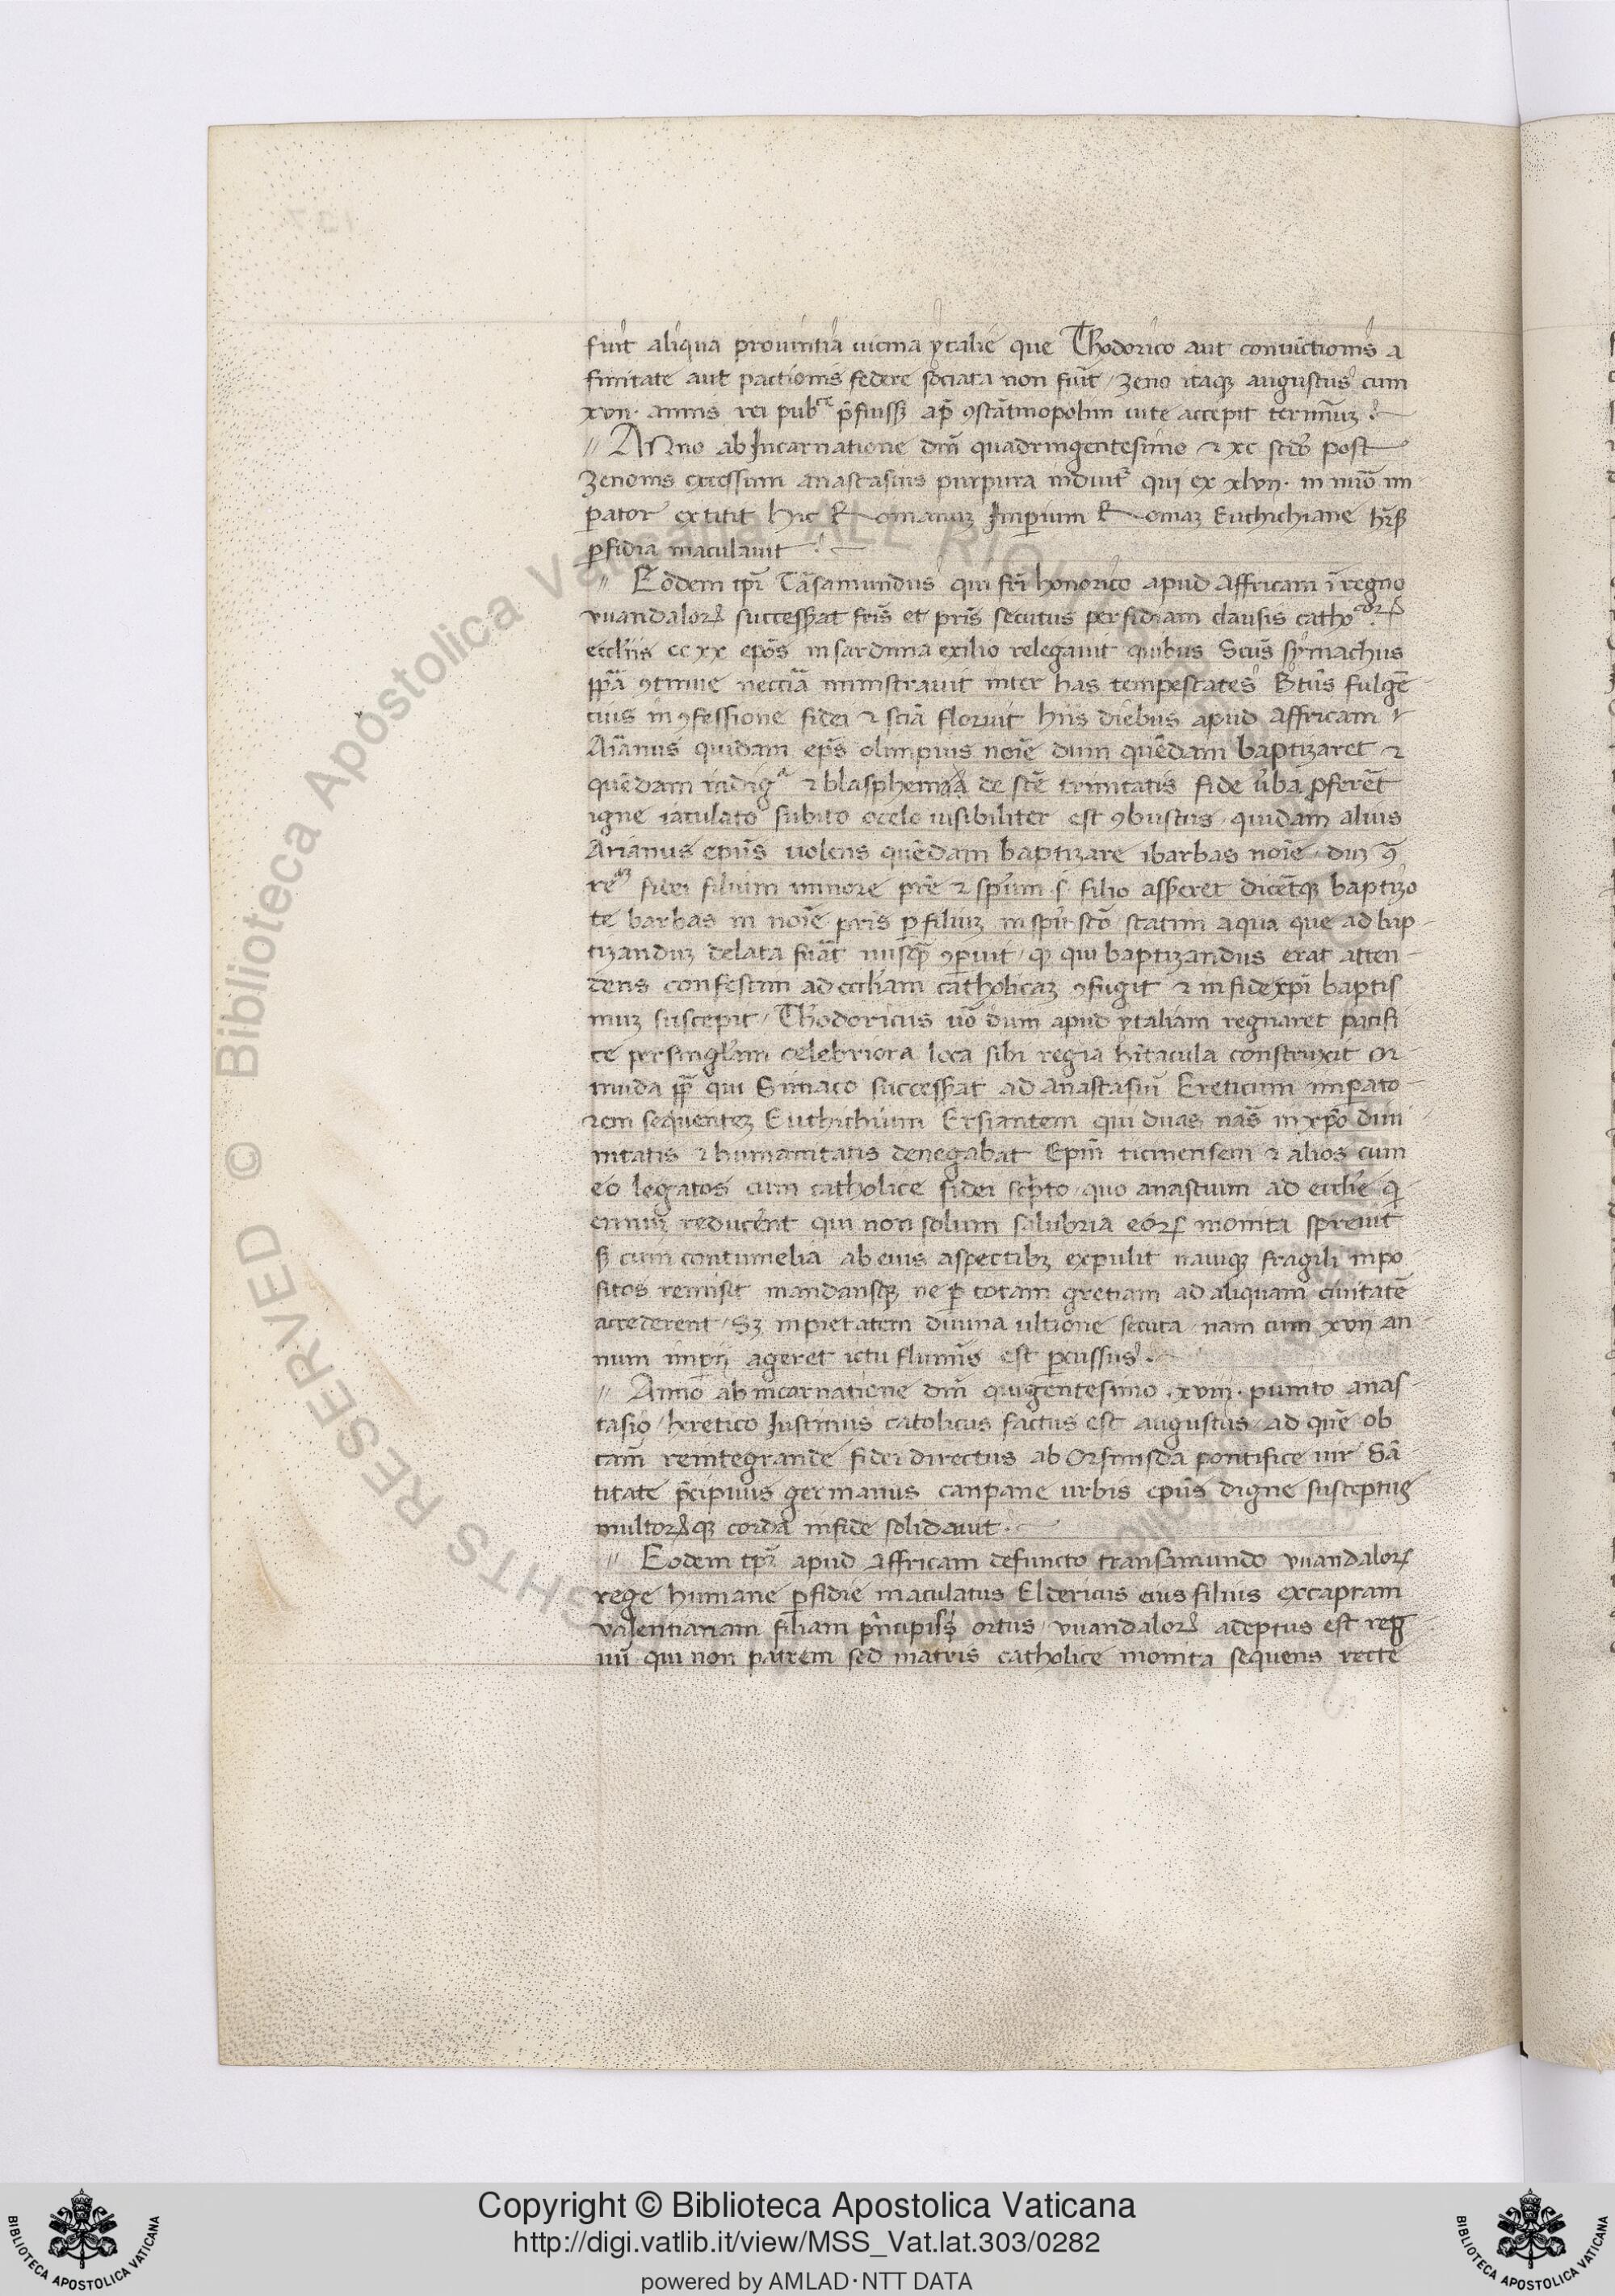 fuit aliqua prouintia uicina ytalie que Thodorico aut conuictionis a
finitate aut pactionis federe sociata non fuit / Zeno itaqꝫ augustus cum
xvii · annis rei pubce p̄fuissꝫ ap̄ ꝯstātinopolim uite accepit terminuꝫ
// ANno ab Incarnatione dn̄i quadringentesimo ⁊ xc post
Zenonis excessum anastasius purpura induit qui ex xlvii · in
pator extitit hic Romanuꝫ Imperium Euthichiane
ꝑfidia maculauit
// Eodem tp̄r Tāsamundus qui fr̄i honorico apud Affricam ī regno
vuandaloꝝ successꝑat fr̄is et pr̄is secutus perfidiam clausis catho coꝝ
eccl̄iis cc xx ep̄os in sardinia exilio relegauit quibus Sc̄us symachus
ꝯtinue neccīa ministrauit inter has tempestates Bt̄us fulgē
tius in ꝯfessione fidei ⁊ sciā floruit hiis diebus apud Affricam
Arīanus quidam ep̄s olimpius noīe dum quēdam baptizaret ⁊
quēdam indig a ⁊ blasphema de sc̄e trinitatis fide ūba ꝓferēt
igne iaculato subito ocelo uisibiliter est ꝯbustus · quidam alius
Arianus epīus uolens quēdam baptizare barbas noīe
fidei filium minore pr̄e ⁊ filio assꝑeret dicētqꝫ baptizo
te barbas in noīe pris ꝑ filiuꝫ in spū scō statim aqua que ad bap
tizanduꝫ delata fuāt nusq̄ꝫ ꝯꝑuit / qui baptizandus erat atten
dens confestim ad eccl̄iam catholicaꝫ ꝯfugit ⁊ in fide xp̄i baptis
muꝫ suscepit / Thodoricus uō dum apud ytaliam regnaret pacifi
ce per singl̄am celebriora loca sibi regia hītacula construxit Or
misda qui Simaco successꝑat ad anastasiū Ereticum imꝑato
rem sequenteꝫ Euthichium qui duas nas̄ in xp̄o diui
nitatis ⁊ humanitatis denegabat Ep̄m ticinensem ⁊ alios cum
eo legatos cum catholice fidei scp̄to quo anastium ad
reducerēnt qui non solum salubria eoꝝ monita spreuit
sꝫ cum contumelia ab eius aspectibꝫ expulit nauiqꝫ fragili inpo
sitos remisit mandansqꝫ ne ꝑ totam gretiam ad aliquam ciuitatē
accederent / Sꝫ inpietatem diuina ultione secuta / nam cum xvii an
num ageret ictu fluminīs est ꝑcussus
// Anno ab incarnatione dn̄i quigentesimo · xviii · punito anas
tasio / heretico Iustinus catolicus factus est augustus / ad quē ob
cam̄ reintegrande fidei directus ab Orsmisda pontifice uir Sā
titate p̄cipuus germanus canpane urbis epīus digne susceptus
multoꝝqꝫ corda in fide solidauit
// Eodem tp̄r apud Affricam defuncto transamundo vuandaloꝝ
rege humane ꝑfidie maculatus Eldericus eius filius ex captam
valentianam filiam ortus / vuandaloꝝ adeptus est reg
nū qui non patrem sed matris catholice monita sequens recte
Copyright © Biblioteca Apostolica Vaticana
http://digi.vatlib.it/view/MSS_Vat.lat.303/0282
powered by AMLAD · NTT DATA